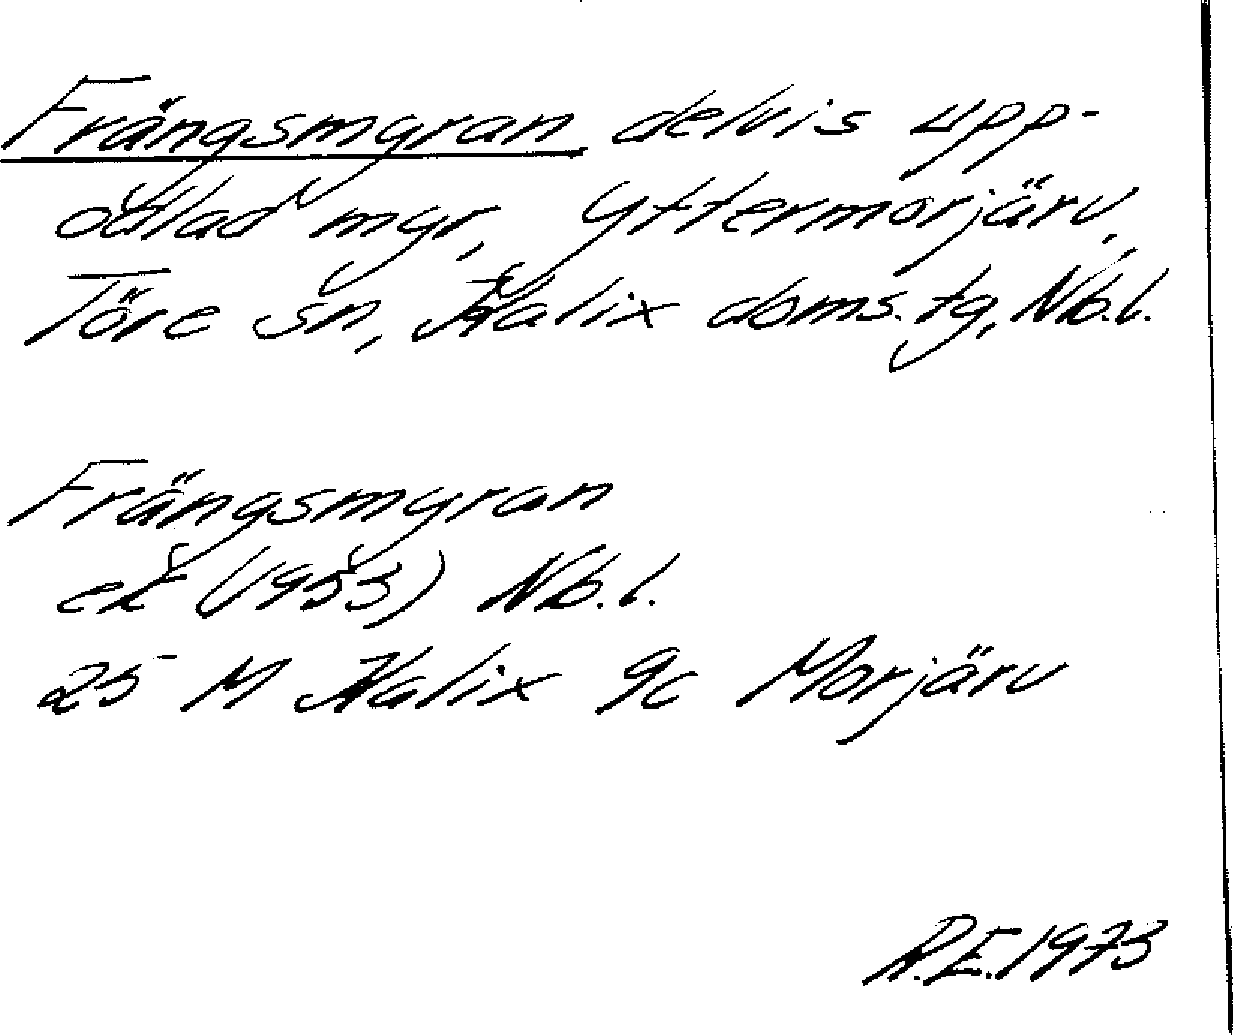 Frängsmyran delvis upp-
odlad myr, Yttermorjärv,
Töre sn, Kalix doms.tg, Nb.l.
Frängsmyran
ek (1953) Nb.l.
25 M Kalix 9c Morjärv
R.E. 1973